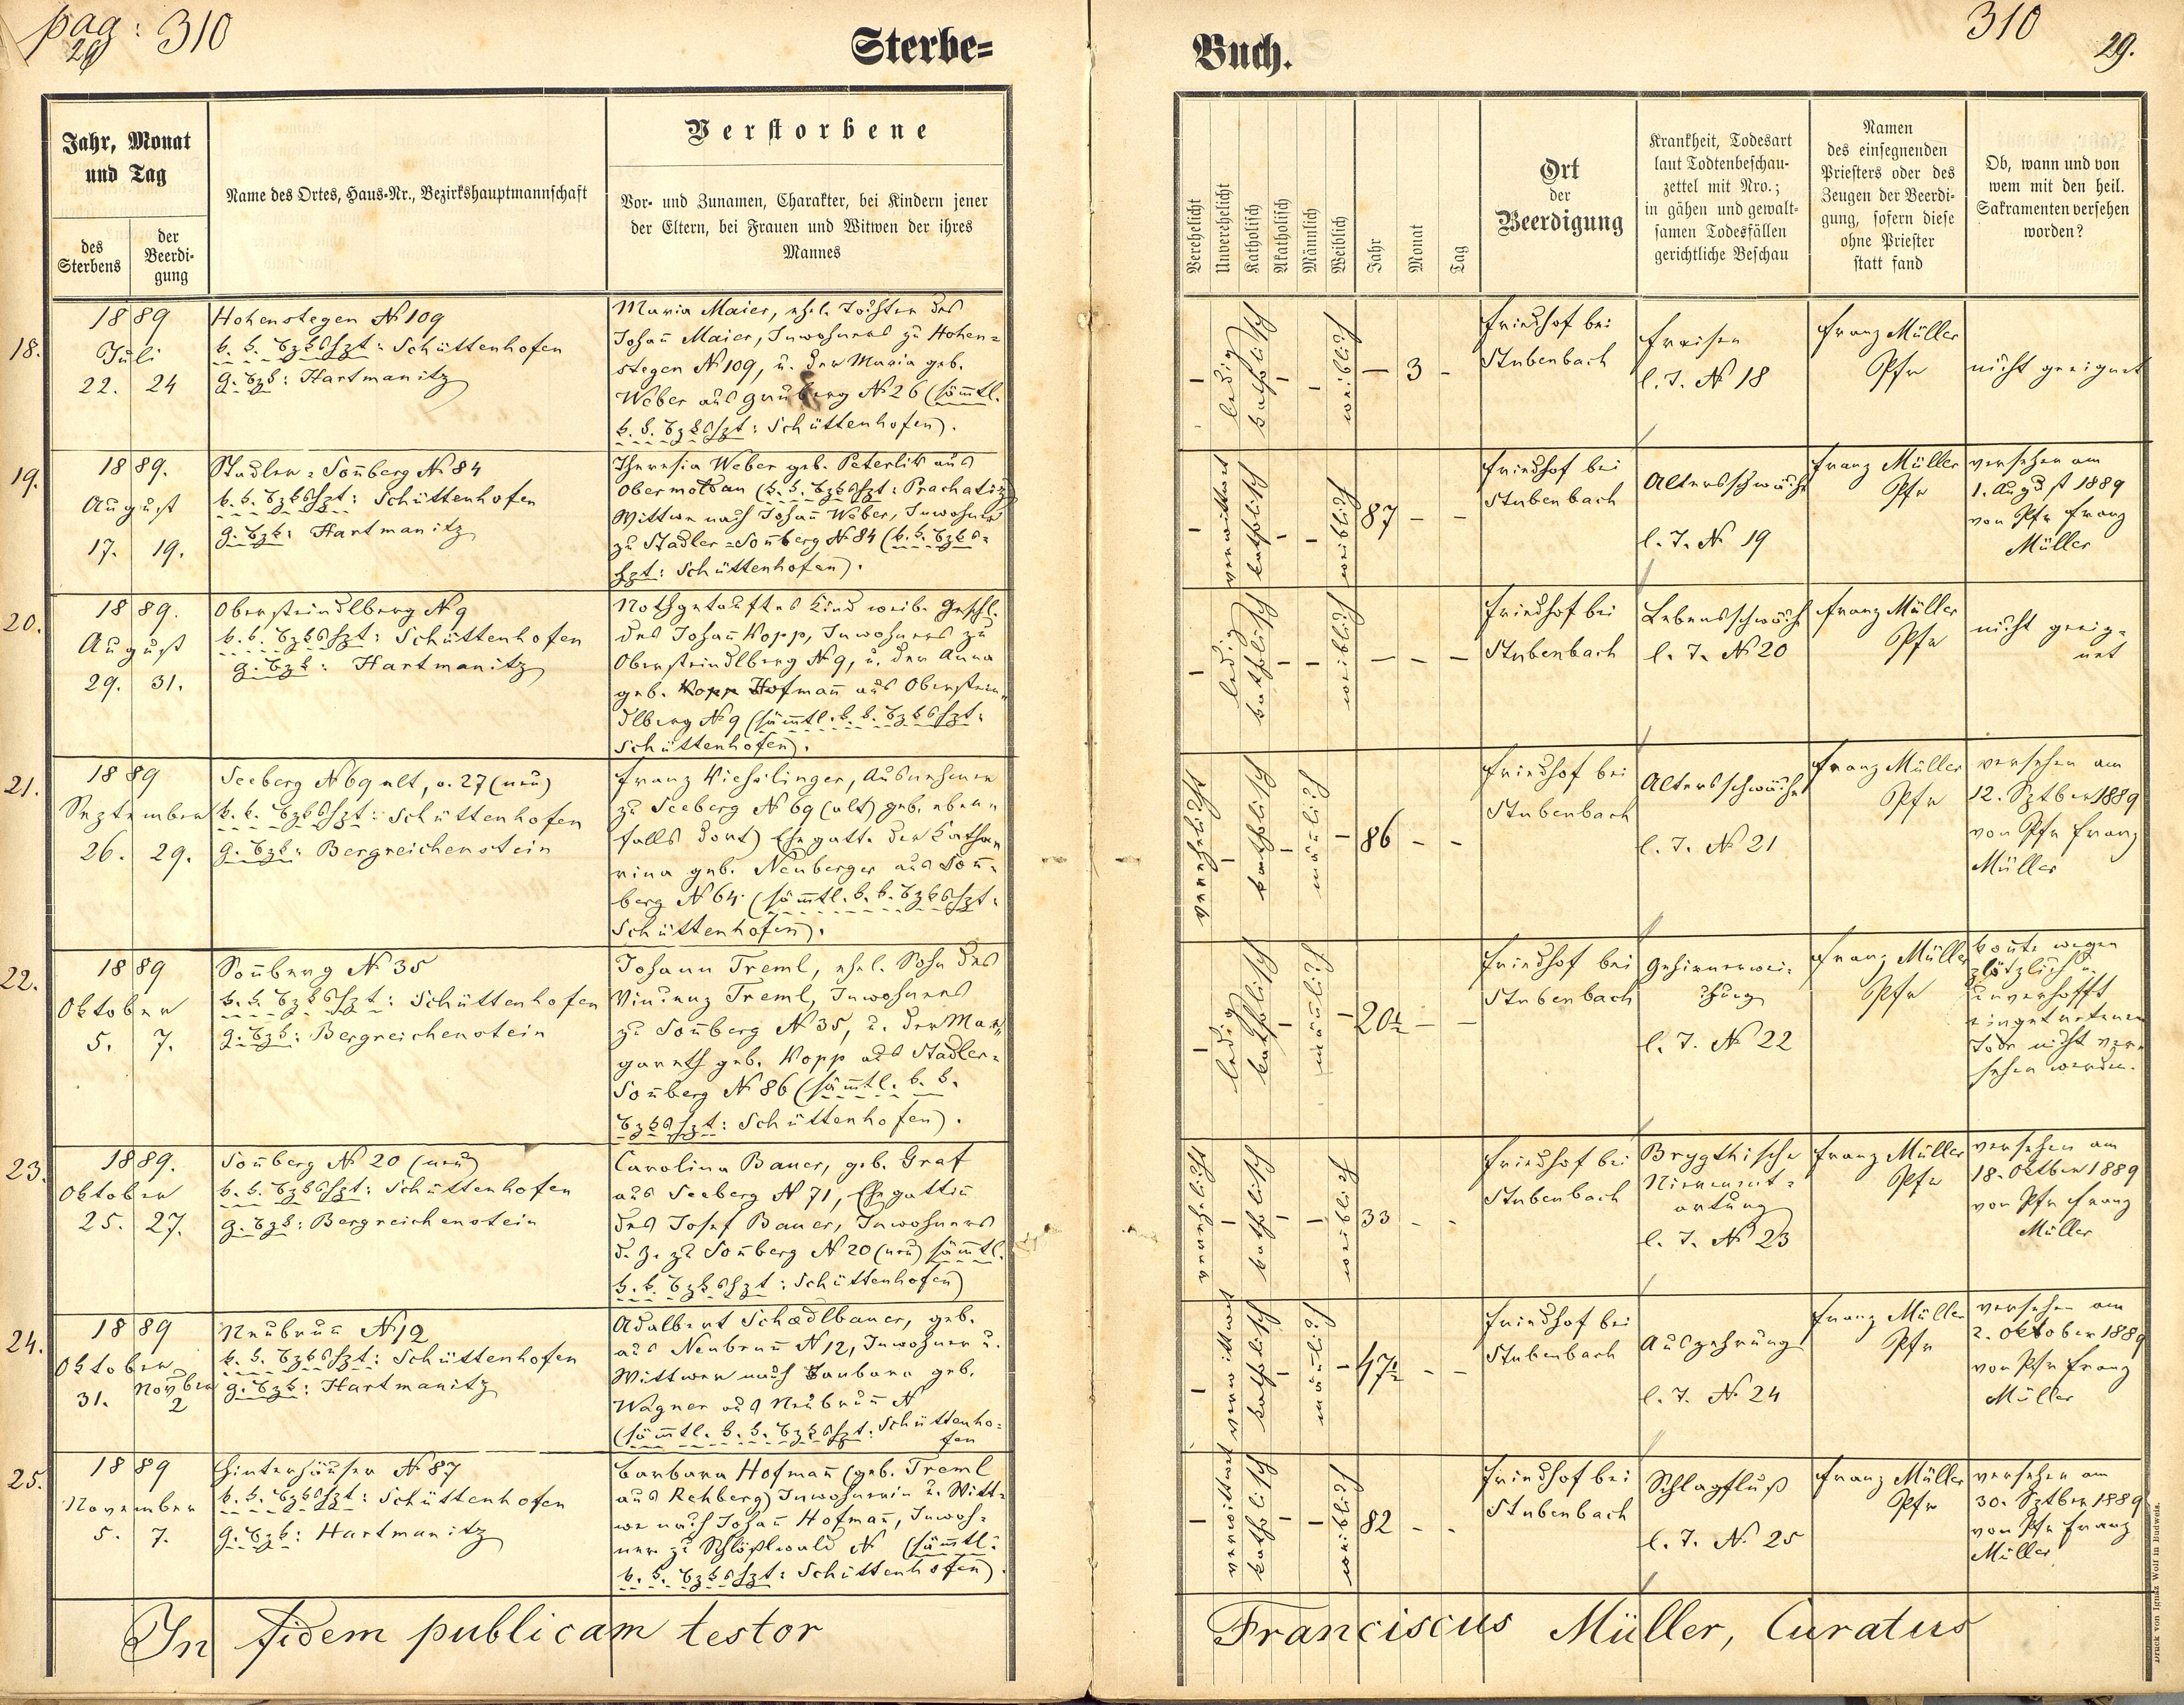 pag: 310
29
Sterbe=
Jahr, Monat
und Tag
des
Sterbens
der
Beerdi-
gung
Name des Ortes, Haus-Nr., Bezirkshauptmannschaft
Verstorbene
Vor- und Zunamen, Charakter, bei Kindern jener
der Eltern, bei Frauen und Witwen der ihres
Mannes
18.
1889
Juli
22. 24
Hohenstegen № 109
k. k. Bzkshpt: Schüttenhofen
G. Bzk: Hartmanitz
Maria Maier, ehl. Tochter des
Johañ Maier, Inwohners zu Hohen=
stegen № 109, u. der Maria geb.
Weber aus Gruberg № 26 (sämtl.
k. k. Bzkshpt: Schüttenhofen).
19.
1889.
August
17. 19.
Stadler=Soñberg № 84
k. k. Bzkshpt: Schüttenhofen
G. Bzk: Hartmanitz
Theresia Weber geb. Peterlik aus
Obermoldau (k. k. Bzkshpt: Prachatitz)
Wittwe nach Johañ Weber, Inwohner
zu Stadler=Soñberg № 84 (k. k. Bzks=
hpt: Schüttenhofen).
20.
1889.
August
29. 31.
Obersteindlberg № 9
k. k. Bzkshpt: Schüttenhofen
G. Bzk: Hartmanitz
Nothgetauftes Kind weib. Geschl.
des Johañ Kopp, Inwohners zu
Obersteindlberg № 9, u. der Anna
geb. Kopp Hofmañ aus Oberstein"
dlberg № 9 (säm̄tl. k. k. Bzkshpt:
Schüttenhofen).
21.
1889
September
26. 29.
Seeberg № 69 alt, o. 27 (neu)
k. k. Bzkshpt: Schüttenhofen
G. Bzk: Bergreichenstein
Franz Kieslinger, Ausnehmer
zu Seeberg № 69 (alt) geb. eben"
falls dort) Ehegatte der Katha"
rina geb. Neuberger aus Soñ=
berg № 64 (säm̄tl. k. k. Bzkshpt:
Schüttenhofen).
22.
1889
Oktober
5. 7.
Soñberg № 35
k. k. Bzkshpt: Schüttenhofen
G. Bzk: Bergreichenstein
Johann Treml, ehel. Sohn des
Vincenz Treml, Inwohners
zu Soñberg № 35, u. der Mar"
gareth geb. Kopp aus Stadler=
Soñberg № 86 (säm̄tl. k. k.
Bzkshpt: Schüttenhofen).
23.
1889.
Oktober
25. 27.
Soñberg № 20 (neu)
k. k. Bzkshpt: Schüttenhofen
G. Bzk: Bergreichenstein
Carolina Bauer, geb. Graf
aus Seeberg № 71, Ehegattin
des Josef Bauer, Inwohners
d. Z. zu Soñberg № 20 (neu) säm̄tl.
k. k. Bzkshpt: Schüttenhofen)
24.
1889
Oktober
31. Novber
2
Neubruñ № 12
k. k. Bzkshpt: Schüttenhofen
G. Bzk: Hartmanitz
Adalbert Schœdlbauer, geb.
aus Neubrunn № 12, Inwohner u.
Wittwer nach Barbara geb.
Wagner aus Neubruñ №
(säm̄tl. k. k. Bzkshpt: Schüttenho=
fen
25.
1889
November
5. 7.
Hinterhäuser № 87
k. k. Bzkshpt: Schüttenhofen
G. Bzk: Hartmanitz
Barbara Hofmañ (geb. Treml
aus Rehberg) Inwohnerin u. Witt=
we nach Johañ Hofmañ, Inwoh=
ner zu Schlößlwald № (säm̄tl:
k. k. Bzkshpt: Schüttenhofen).
In fidem publicam testor
310
29.
Buch.
Verehelicht
Unverehelicht
Katholisch
Akatholisch
Männlich
Weiblich
Jahr
Monat
Tag
Ort
der
Beerdigung
Krankheit, Todesart
laut Todtenbeschau-
zettel mit Nro.;
in gähen und gewalt-
samen Todesfällen
gerichtliche Beschau
Namen
des einsegnenden
Priesters oder des
Zeugen der Beerdi-
gung, sofern diese
ohne Priester
statt fand
Ob, wann und von
wem mit den heil.
Sakramenten versehen
worden?
– ledig katholisch – – weiblich – 3 –
Friedhof bei
Stubenbach
Fraisen
l. T. № 18
Franz Müller
Pfr
nicht geeignet
– verwittwet katholisch – – weiblich 87 – –
Friedhof bei
Stubenbach
Altersschwäche
l. T. № 19
Franz Müller
Pfr
versehen am
1. August 1889
von Pfr Franz
Müller
– ledig katholisch – – weiblich – – –
Friedhof bei
Stubenbach
Lebensschwäch
l. T. № 20
Franz Müller
Pfr
nicht geeig=
net
verehelicht – katholisch – mänlich – 86 – –
Friedhof bei
Stubenbach
Altersschwäche
l. T. № 21
Franz Müller
Pfr
versehen am
12. Sptber 1889
von Pfr Franz
Müller
– ledig katholisch – mänlich – 20½ – –
Friedhof bei
Stubenbach
Gehirnerwei=
chung
l. T. № 22
Franz Müller
Pfr
koñte wegen
plötzlich u.
unverhofft
eingetretenen
Tode nicht ver=
sehen werden.
verehelicht – katholisch – – weiblich 33 – –
Friedhof bei
Stubenbach
Brygthische
Nierenent=
artung
l. T. № 23
Franz Müller
Pfr
versehen am
18. Oktber 1889
von Pfr Franz
Müller
– verwittwet katholisch – mänlich – 47½ – –
Friedhof bei
Stubenbach
Auszehrung
l. T. № 24
Franz Müller
Pfr
versehen am
2. Oktober 1889
von Pfr Franz
Müller
– verwittwet katholisch – – weiblich 82 – –
Friedhof bei
Stubenbach
Schlagfluß
l. T. № 25
Franz Müller
Pfr
versehen am
30. Sptber 1889
von Pfr Franz
Müller
Franciscus Müller, Curatus
Druck von Ignaz Wolf in Budweis.